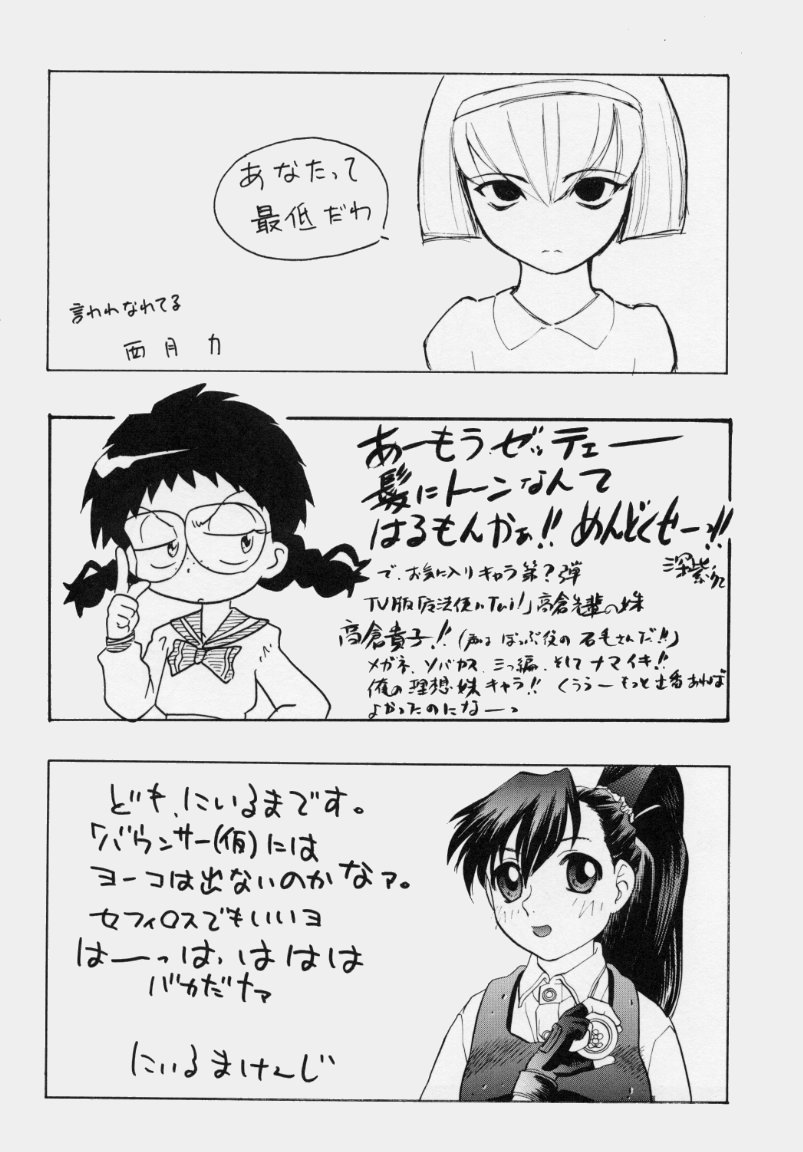 あなたって
最低だわ
言われなれてる
西月力
あーもうゼッテェー
髪にトーンなんて
はるもんかぁ!! めんどくせーっ!!
で、お気に入りキャラ第?弾
TV版「魔法使いTai!」高倉先輩の妹
高倉貴子!!
メガネ、ソバカス、三つ編、そしてナマイキ!!
俺の理想妹キャラ!! くうぅーもっと出番あれば
よかったのになーっ
ども、にいるまです。
「バウンサー(仮)には
ヨーコは出ないのかなァ。
セフィロスでもいいヨ
はーっは、ははは
バカだナァ
にいるまけーじ